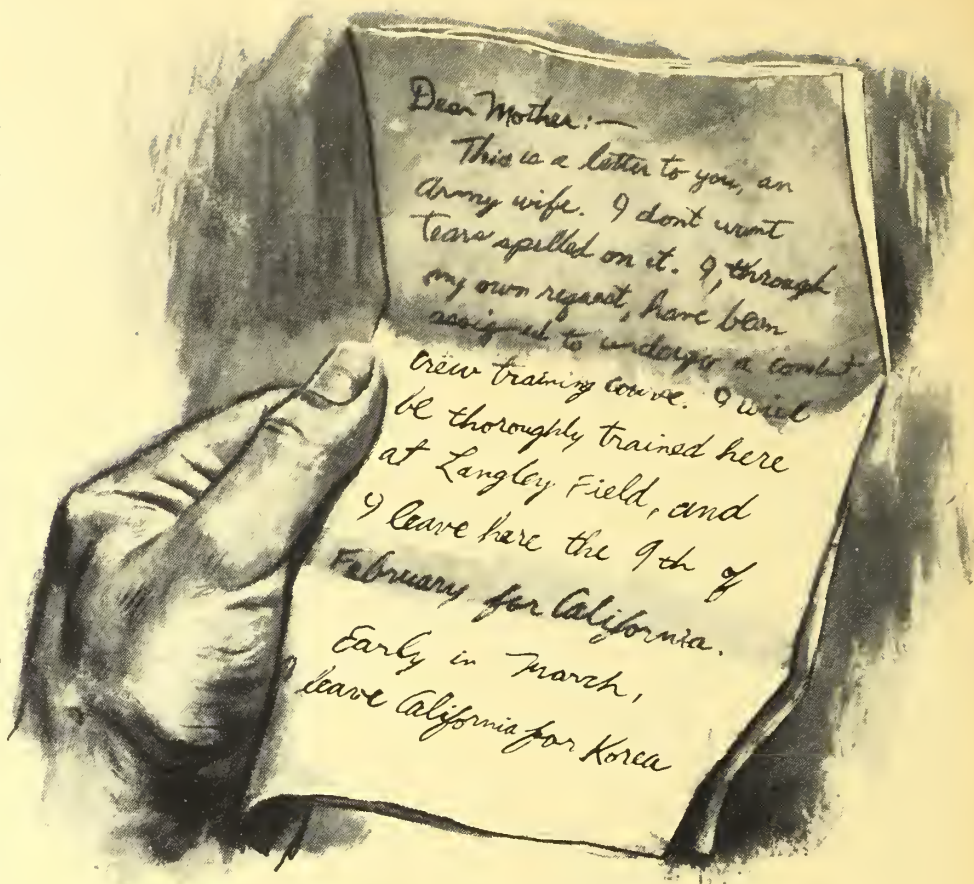 Dear Mother:—
This is a letter to you, an
Army wife. I dont want
Tears spilled on it. I, through
my own request, have been
assigned to undergo a combat
crew training course. I will
be thoroughly trained here
at Langley Field, and
I leave here the 9th of
February for California.
Early in March,
leave California for Korea